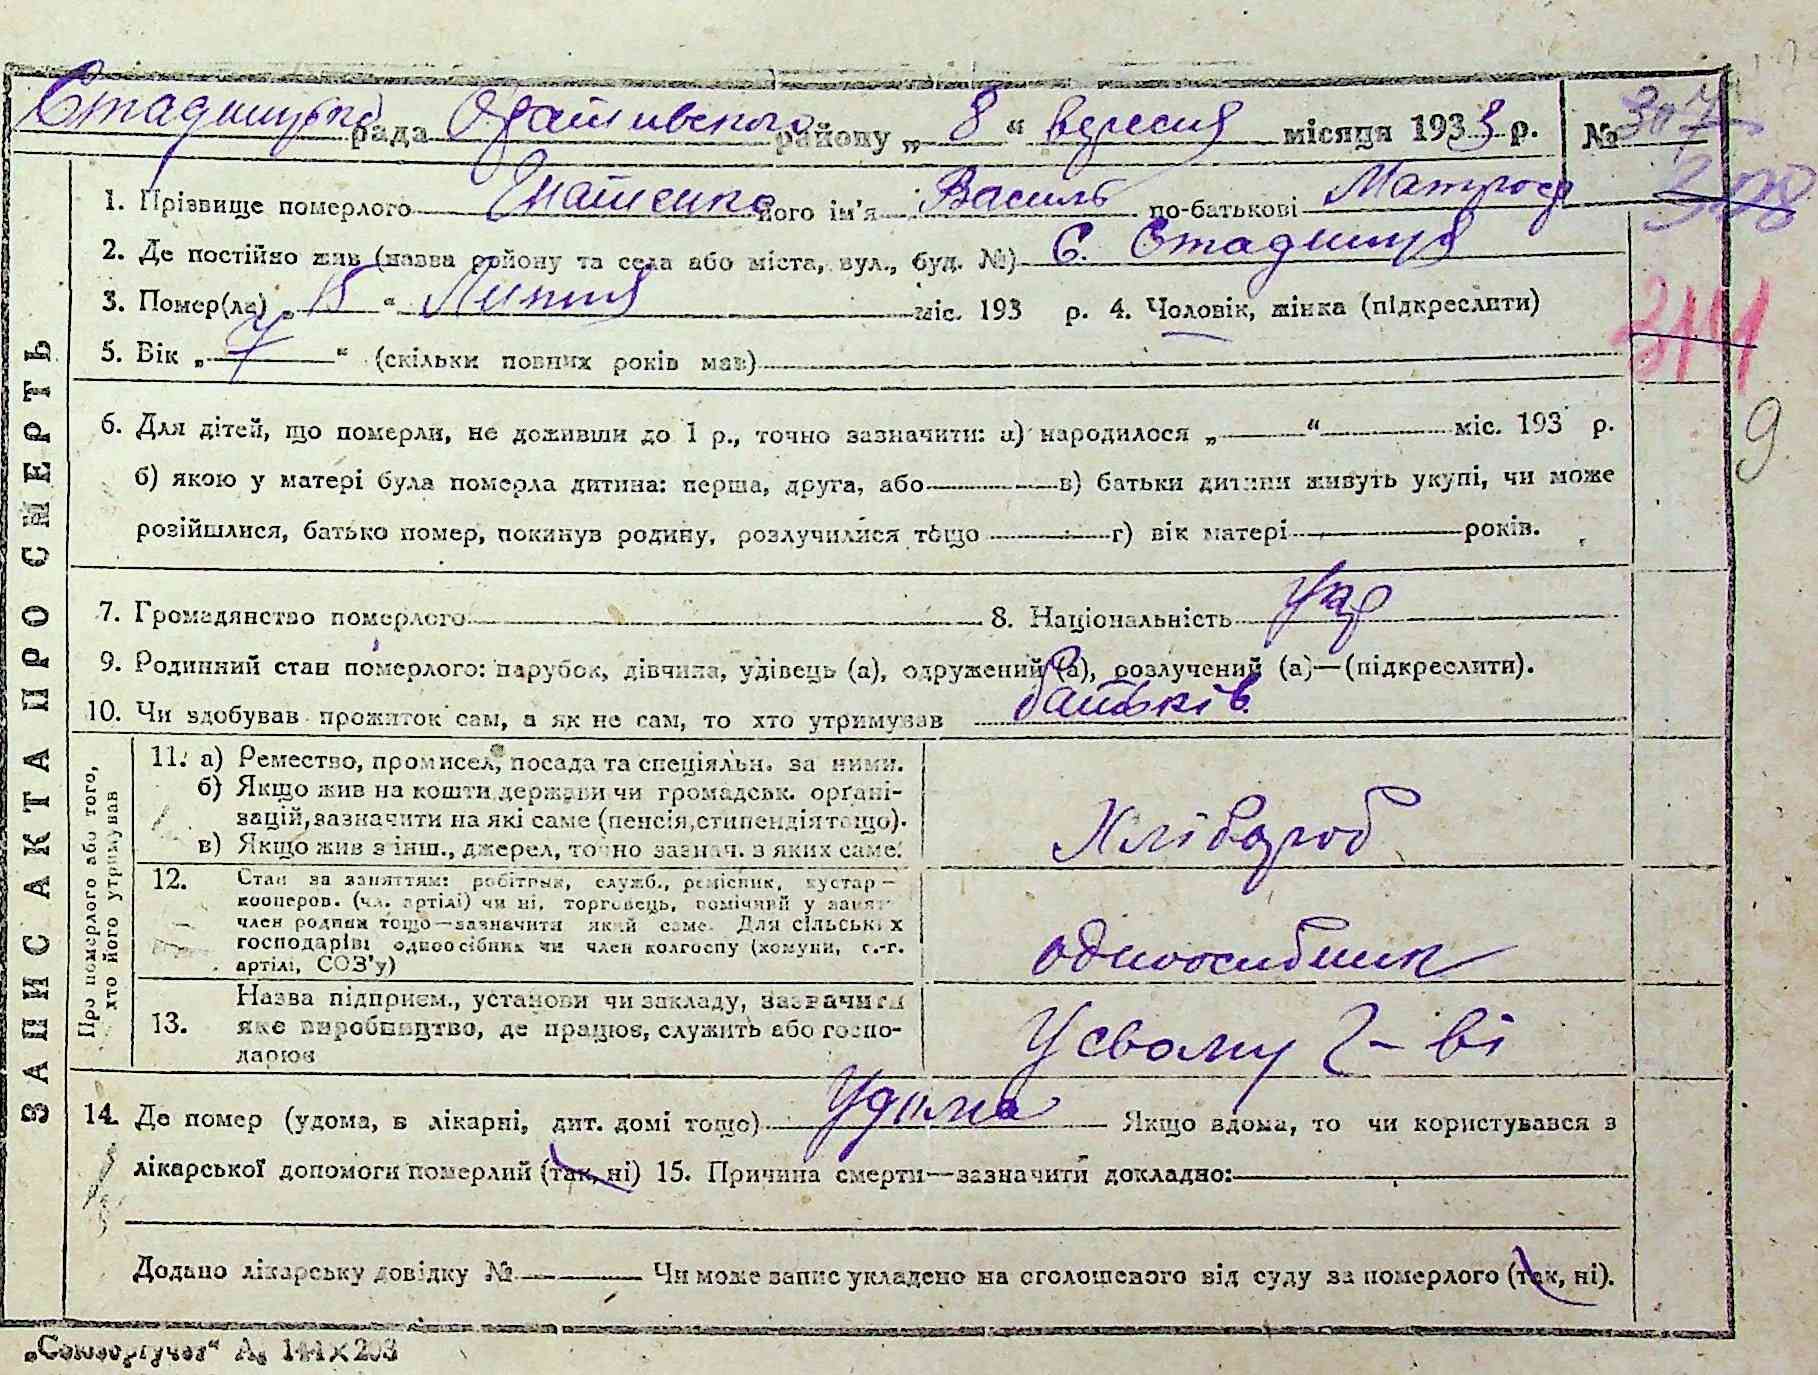 Стадницька рада Оратівського району „ 8 “ вересня місяця 1933 р. № 307
308
1. Прізвище померлого Гнатенко його ім'я Василь по-батькові
2. Де постійно жив (назва району та села або міста, вул., буд. №) С. Стадниця
3. Помер(ла) „ 15 “ Липня міс. 193 р. 4. Чоловік, жінка (підкреслити)
314
5. Вік „ 7 “ (скільки повних років мав)
9
6. Для дітей, що померли, не доживши до 1 р., точно зазначити: а) народилося „ “ міс. 193 р.
б) якою у матері була померла дитина: перша, друга, або в) батьки дитини живуть укупі, чи може
розійшлися, батько помер, покинув родину, розлучилися тощо г) вік матері років.
7. Громадянство померлого 8. Національність Укр
9. Родинний стан померлого: парубок, дівчина, удівець (а), одружений (а), розлучений (а)—(підкреслити).
10. Чи здобував прожиток сам, а як не сам, то хто утримував батьків
ЗАПИС АКТА ПРО СМЕРТЬ
Про померлого або того, хто його утримував
11. а) Ремество, промисел, посада та спеціяльн. за ними.
б) Якщо жив на кошти держави чи громадськ. органі-
зацій, зазначити на які саме (пенсія, стипендія тощо).
в) Якщо жив з інш., джерел, точно зазнач. з яких саме.
Хлібороб
12. Стан за заняттям: робітник, служб., ремісник, кустар—
кооперов. (чл. артілі) чи ні, торговець, помічний у занят.
член родини тощо—зазначити який саме. Для сільських
господарів: одноосібник чи член колгоспу (комуни, с.-г.
артілі, СОЗ'у)
одноосибник
13. Назва підприєм., установи чи закладу, зазначити
яке виробництво, де працює, служить або госпо-
дарює
У свому г-ві
14. Де помер (удома, в лікарні, дит. домі тощо) Удома Якщо вдома, то чи користувався з
лікарської допомоги померлий (так, ні) 15. Причина смерти—зазначити докладно:
Додано лікарську довідку № Чи може запис укладено на оголошеного від суду за померлого (так, ні).
„Союзоргучет“ А₆ 144×203